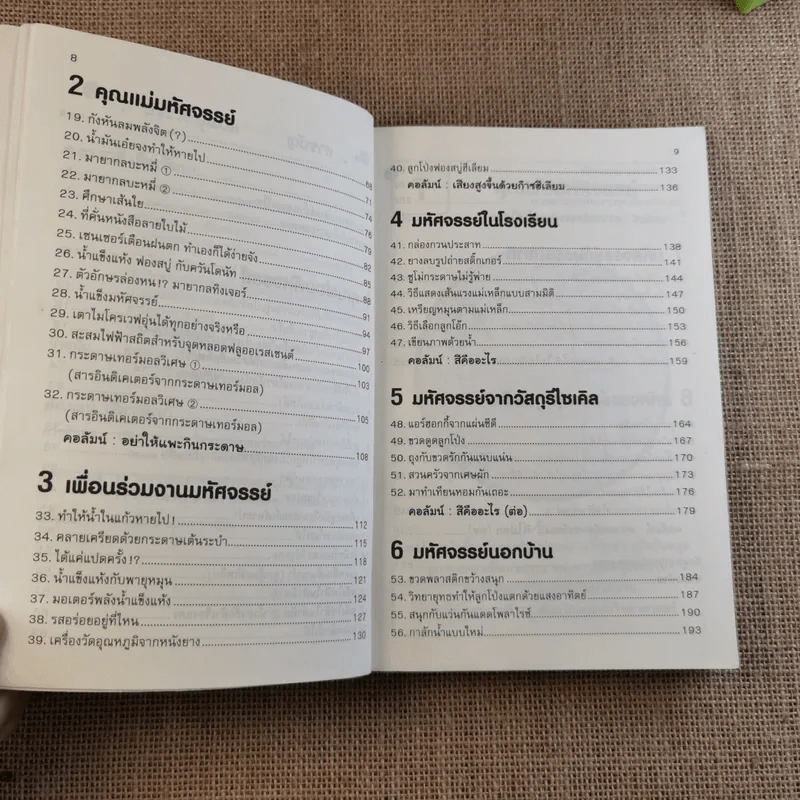 8
2 คุณแม่มหัศจรรย์
19. กังหันลมพลังจิต (?) 68
20. น้ำมันเอ๋ยจงทำให้หายไป 71
21. มายากลบะหมี่ ① 74
22. มายากลบะหมี่ ② 76
23. ศึกษาเส้นใย 79
24. ที่คั่นหนังสือลายใบไม้ 82
25. เซนเซอร์เตือนฝนตก ทำเองก็ได้ง่ายจัง 85
26. น้ำแข็งแห้ง ฟองสบู่ กับควันโดนัท 88
27. ตัวอักษรล่องหน!? มายากลทิงเจอร์ 91
28. น้ำแข็งมหัศจรรย์ 94
29. เตาไมโครเวฟอุ่นได้ทุกอย่างจริงหรือ 97
30. สะสมไฟฟ้าสถิตสำหรับจุดหลอดฟลูออเรสเซนต์ 100
31. กระดาษเทอร์มอลวิเศษ ① 103
(สารอินดิเคเตอร์จากกระดาษเทอร์มอล)
32. กระดาษเทอร์มอลวิเศษ ② 105
(สารอินดิเคเตอร์จากกระดาษเทอร์มอล)
คอลัมน์ : อย่าให้แพะกินกระดาษ 108
3 เพื่อนร่วมงานมหัศจรรย์
33. ทำให้น้ำในแก้วหายไป! 112
34. คลายเครียดด้วยกระดาษเต้นระบำ 115
35. ได้แค่แปดครั้ง!? 118
36. น้ำแข็งแห้งกับพายุหมุน 121
37. มอเตอร์พลังน้ำแข็งแห้ง 124
38. รสอร่อยอยู่ที่ไหน 127
39. เครื่องวัดอุณหภูมิจากหนังยาง 130
9
40. ลูกโป่งฟองสบู่ฮีเลียม 133
คอลัมน์ : เสียงสูงขึ้นด้วยก๊าซฮีเลียม 136
4 มหัศจรรย์ในโรงเรียน
41. กล่องกวนประสาท 138
42. ยางลบรูปถ่ายสติ๊กเกอร์ 141
43. ซูโม่กระดาษไม่รู้พ่าย 144
44. วิธีแสดงเส้นแรงแม่เหล็กแบบสามมิติ 147
45. เหรียญหมุนตามแม่เหล็ก 150
46. วิธีเลือกลูกโอ๊ก 153
47. เขียนภาพด้วยน้ำ 156
คอลัมน์ : สีคืออะไร 159
5 มหัศจรรย์จากวัสดุรีไซเคิล
48. แอร์ฮอกกี้จากแผ่นซีดี 164
49. ขวดดูดลูกโป่ง 167
50. ถุงกับขวดรักกันแนบแน่น 170
51. สวนครัวจากเศษผัก 173
52. มาทำเทียนหอมกันเถอะ 176
คอลัมน์ : สีคืออะไร (ต่อ) 179
6 มหัศจรรย์นอกบ้าน
53. ขวดพลาสติกขว้างสนุก 184
54. วิทยายุทธทำให้ลูกโป่งแตกด้วยแสงอาทิตย์ 187
55. สนุกกับแว่นกันแดดโพลาไรซ์ 190
56. กาลักน้ำแบบใหม่ 193